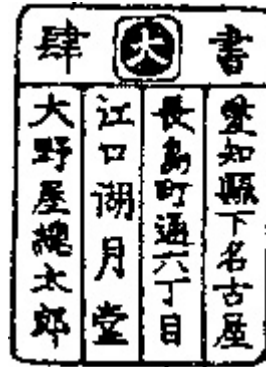 書 大 肆
愛知縣下名古屋
長島町通六丁目
江口湖月堂
大野屋總太郎